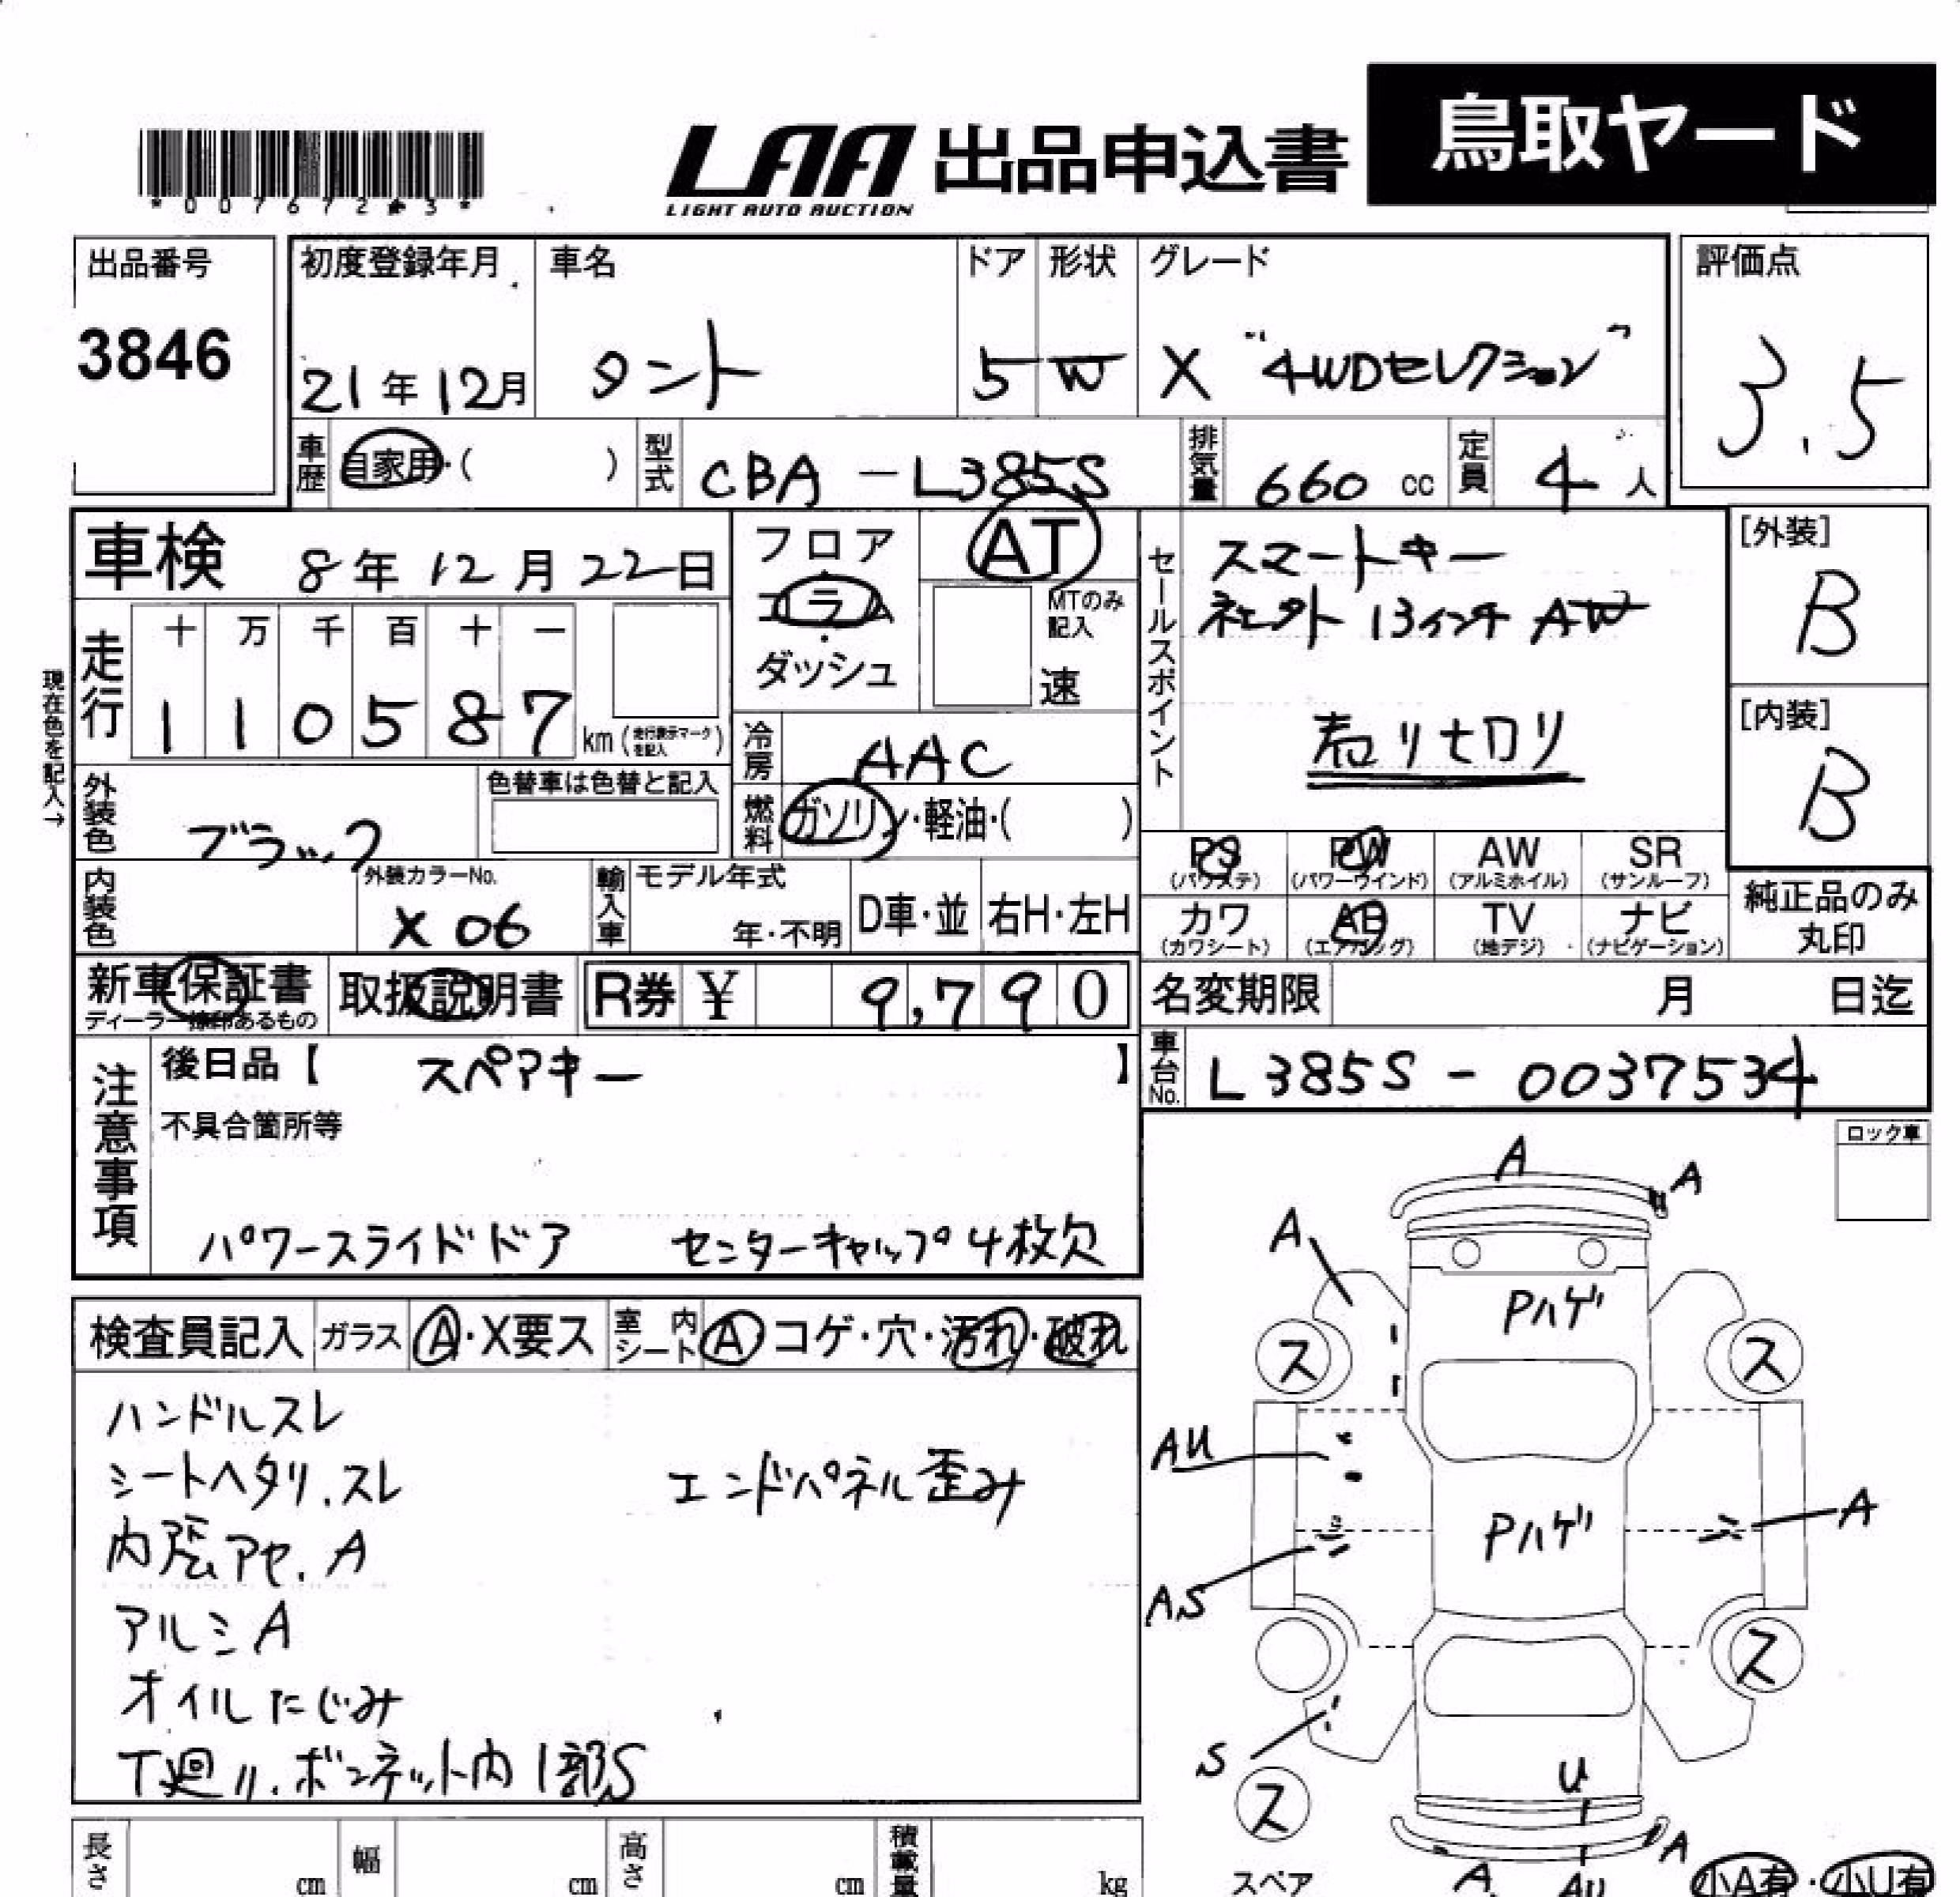 鳥取ヤード
LAA 出品申込書
LIGHT AUTO AUCTION
出品番号
3846
初度登録年月
21年12月
車名
タント
ドア
5
形状
W
グレード
X "4WDセレクション"
評価点
3.5
車歴 自家用・( )
型式 CBA-L385S
排気量 660 cc
定員 4人
車検 8年12月22日
フロア・コラム・ダッシュ
AT
MTのみ記入
速
セールスポイント
スマートキー
13インチ AW
売り切り
[外装]
B
[内装]
B
現在色を記入→
走行
十 万 千 百 十 一
1 1 0 5 8 7 km (走行表示マークを記入)
冷房 AAC
燃料 ガソリン・軽油・( )
外装色 ブラック
色替車は色替と記入
内装色
外装カラーNo.
X06
輸入車
モデル年式
年・不明
D車・並
右H・左H
PS (パワステ)
PW (パワーウインド)
AW (アルミホイル)
SR (サンルーフ)
カワ (カワシート)
AB (エアバッグ)
TV (地デジ)
ナビ (ナビゲーション)
純正品のみ
丸印
新車保証書
ディーラー捺印あるもの
取扱説明書
R券 ¥ 9,790
名変期限 月 日迄
車台No. L385S-0037534
注意事項
後日品【 スペアキー 】
不具合箇所等
パワースライドドア センターキャップ4枚欠
ロック車
検査員記入
ガラス A・X要ス
室内シート A コゲ・穴・汚れ・破れ
ハンドルスレ
シートヘタリ.スレ
エンドパネル歪み
内張アセ.A
アルミA
オイルにじみ
下廻リ.ボンネット内1部S
A
A
A
Pハゲ
ス
ス
AU
Pハゲ
A
AS
ス
S
ス
スペア
U
A
A
AU
小A有・小U有
長さ cm
幅 cm
高さ cm
積載量 kg